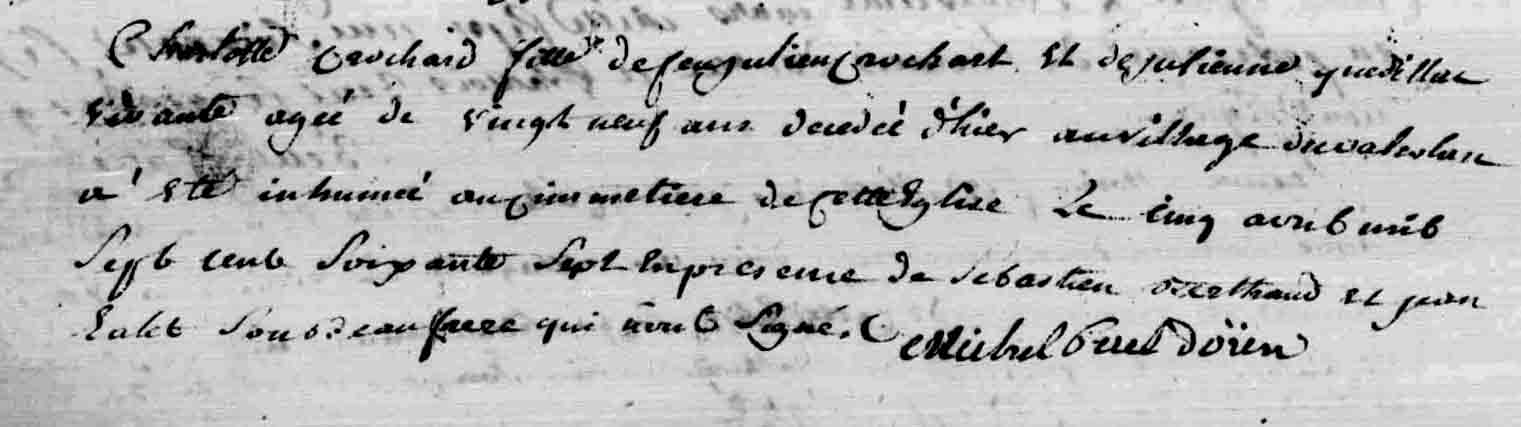 Charlotte Crochard fille de feu julien Crochart et de julienne quedillac
vivante agée de vingt neuf ans decedée d'hier au village du
a été inhumée au cimmetiere de cette Eglise Le cinq avril mil
Sept cent Soixante Sept En presence de sebastien Berthaud et jean
Son beau frere qui n'ont Signé.
Michel doïen